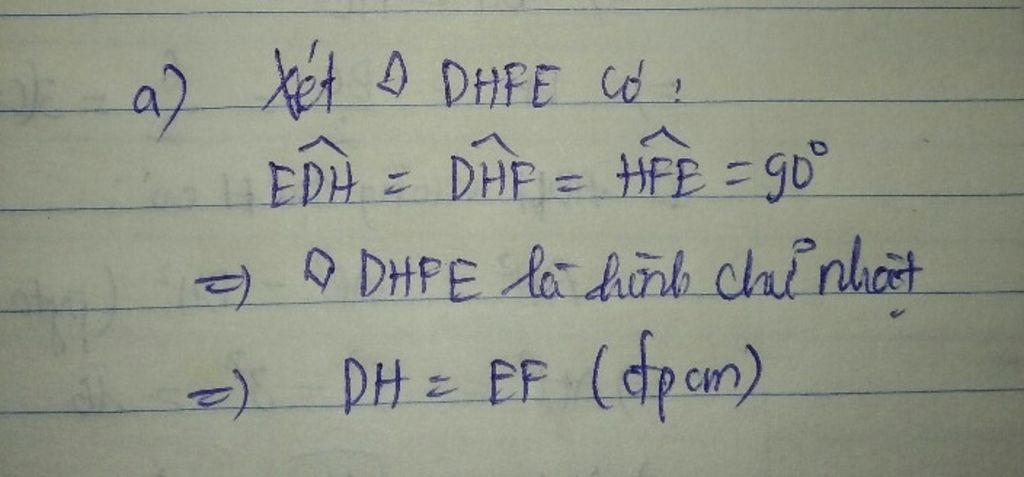 a) Xét ◊ DHFE có:
EDH = DHF = HFE = 90°
=> ◊ DHFE là hình chữ nhật
=> DH = EF (đpcm)